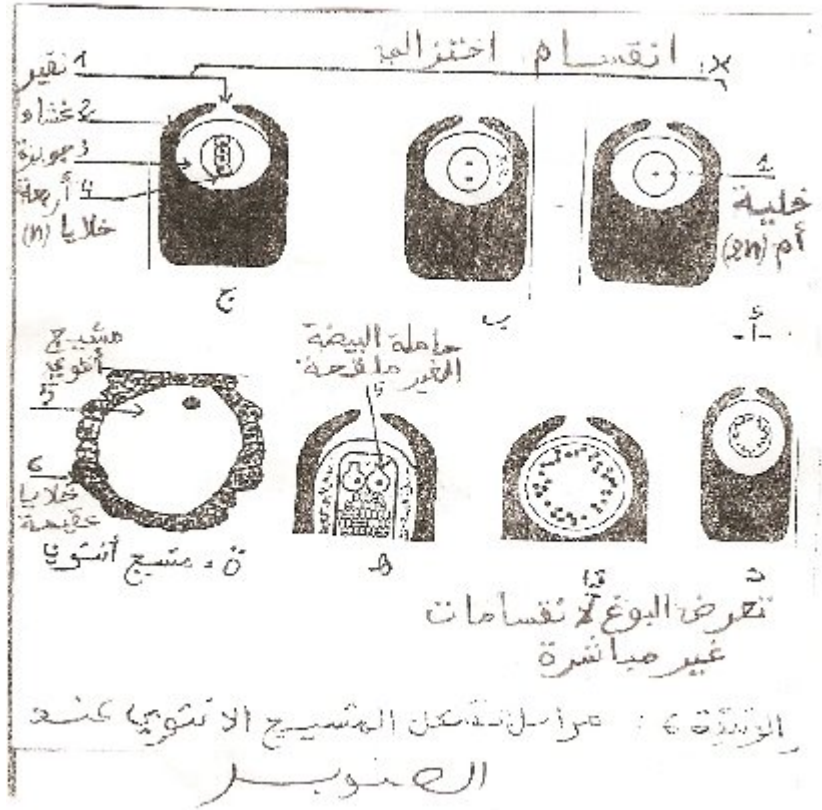 x: انقسام اختزالي
1 نقير
2 غشاء
3 جويزة
4 أربعة
خلايا (n)
1
خلية
أم (2n)
ج
ب
- أ -
مشيج
أنثوي
5
6
خلايا
عقيمة
حاملة البيضة
الغير ملقحة
ة = مشيج أنثوي
د
تعرض البوغ لانقسامات
غير مباشرة
الوثيقة 6 : مراحل تشكل المشيج الانثوي عند
الصنوبر